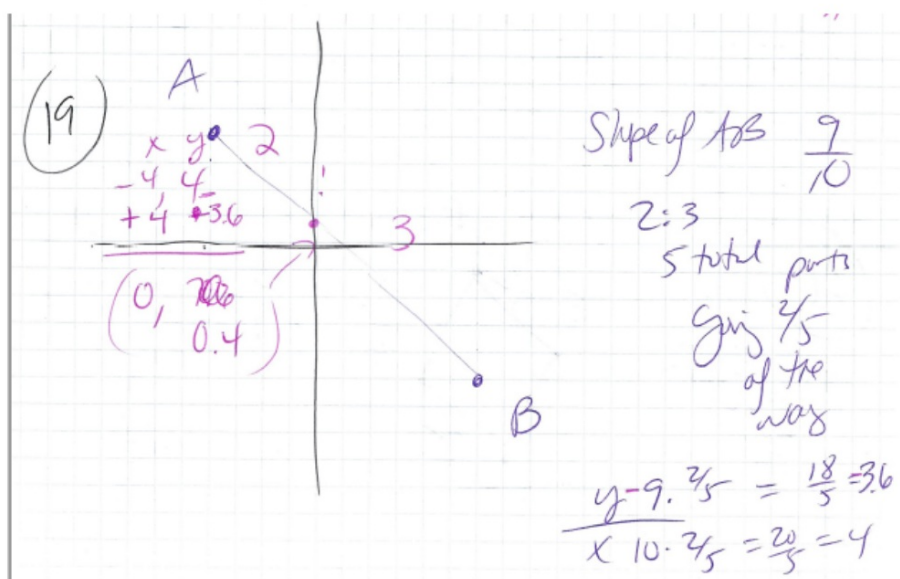 19
A
x y
2
-4, 4
+4 -3.6
3
(0,
0.4)
B
Slope of AB 9/10
2:3
5 total parts
Going 2/5
of the
way
y -9 · 2/5 = 18/5 = 3.6
x 10 · 2/5 = 20/5 = 4